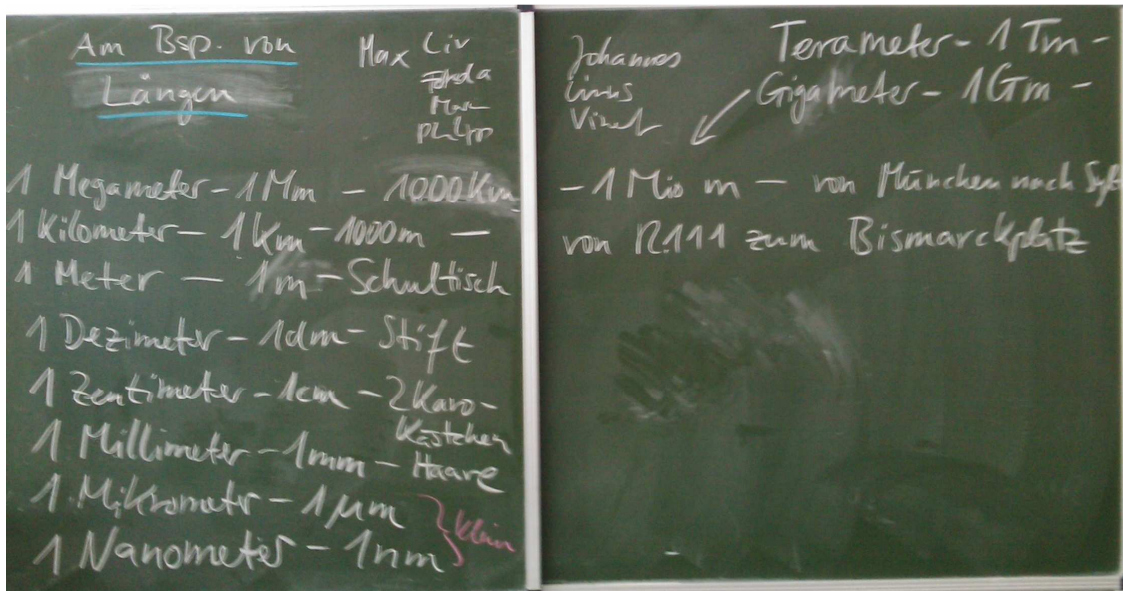 Am Bsp. von
Längen
Max Liv
Marc
Philipp
1 Megameter - 1 Mm - 1000 Km
1 Kilometer - 1 Km - 1000 m -
1 Meter - 1 m - Schultisch
1 Dezimeter - 1 dm - Stift
1 Zentimeter - 1 cm - 2 Karo-
Kästchen
1 Millimeter - 1 mm - Haare
1 Mikrometer - 1 µm
klein
1 Nanometer - 1 nm
Johannes
Linus
Terameter - 1 Tm -
Gigameter - 1 Gm -
- 1 Mio m - von München nach Sylt
von R.111 zum Bismarckplatz